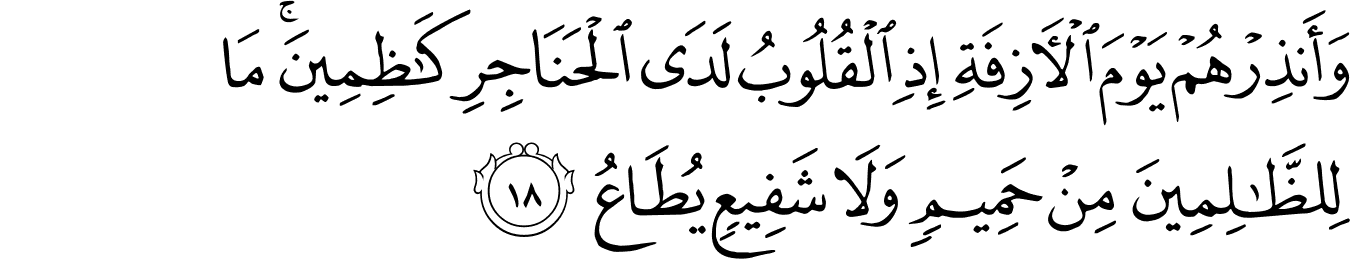 وَأَنذِرْهُمْ يَوْمَ ٱلْـَٔازِفَةِ إِذِ ٱلْقُلُوبُ لَدَى ٱلْحَنَاجِرِ كَـٰظِمِينَ ۚ مَا
لِلظَّـٰلِمِينَ مِنْ حَمِيمٍ وَلَا شَفِيعٍ يُطَاعُ ١٨